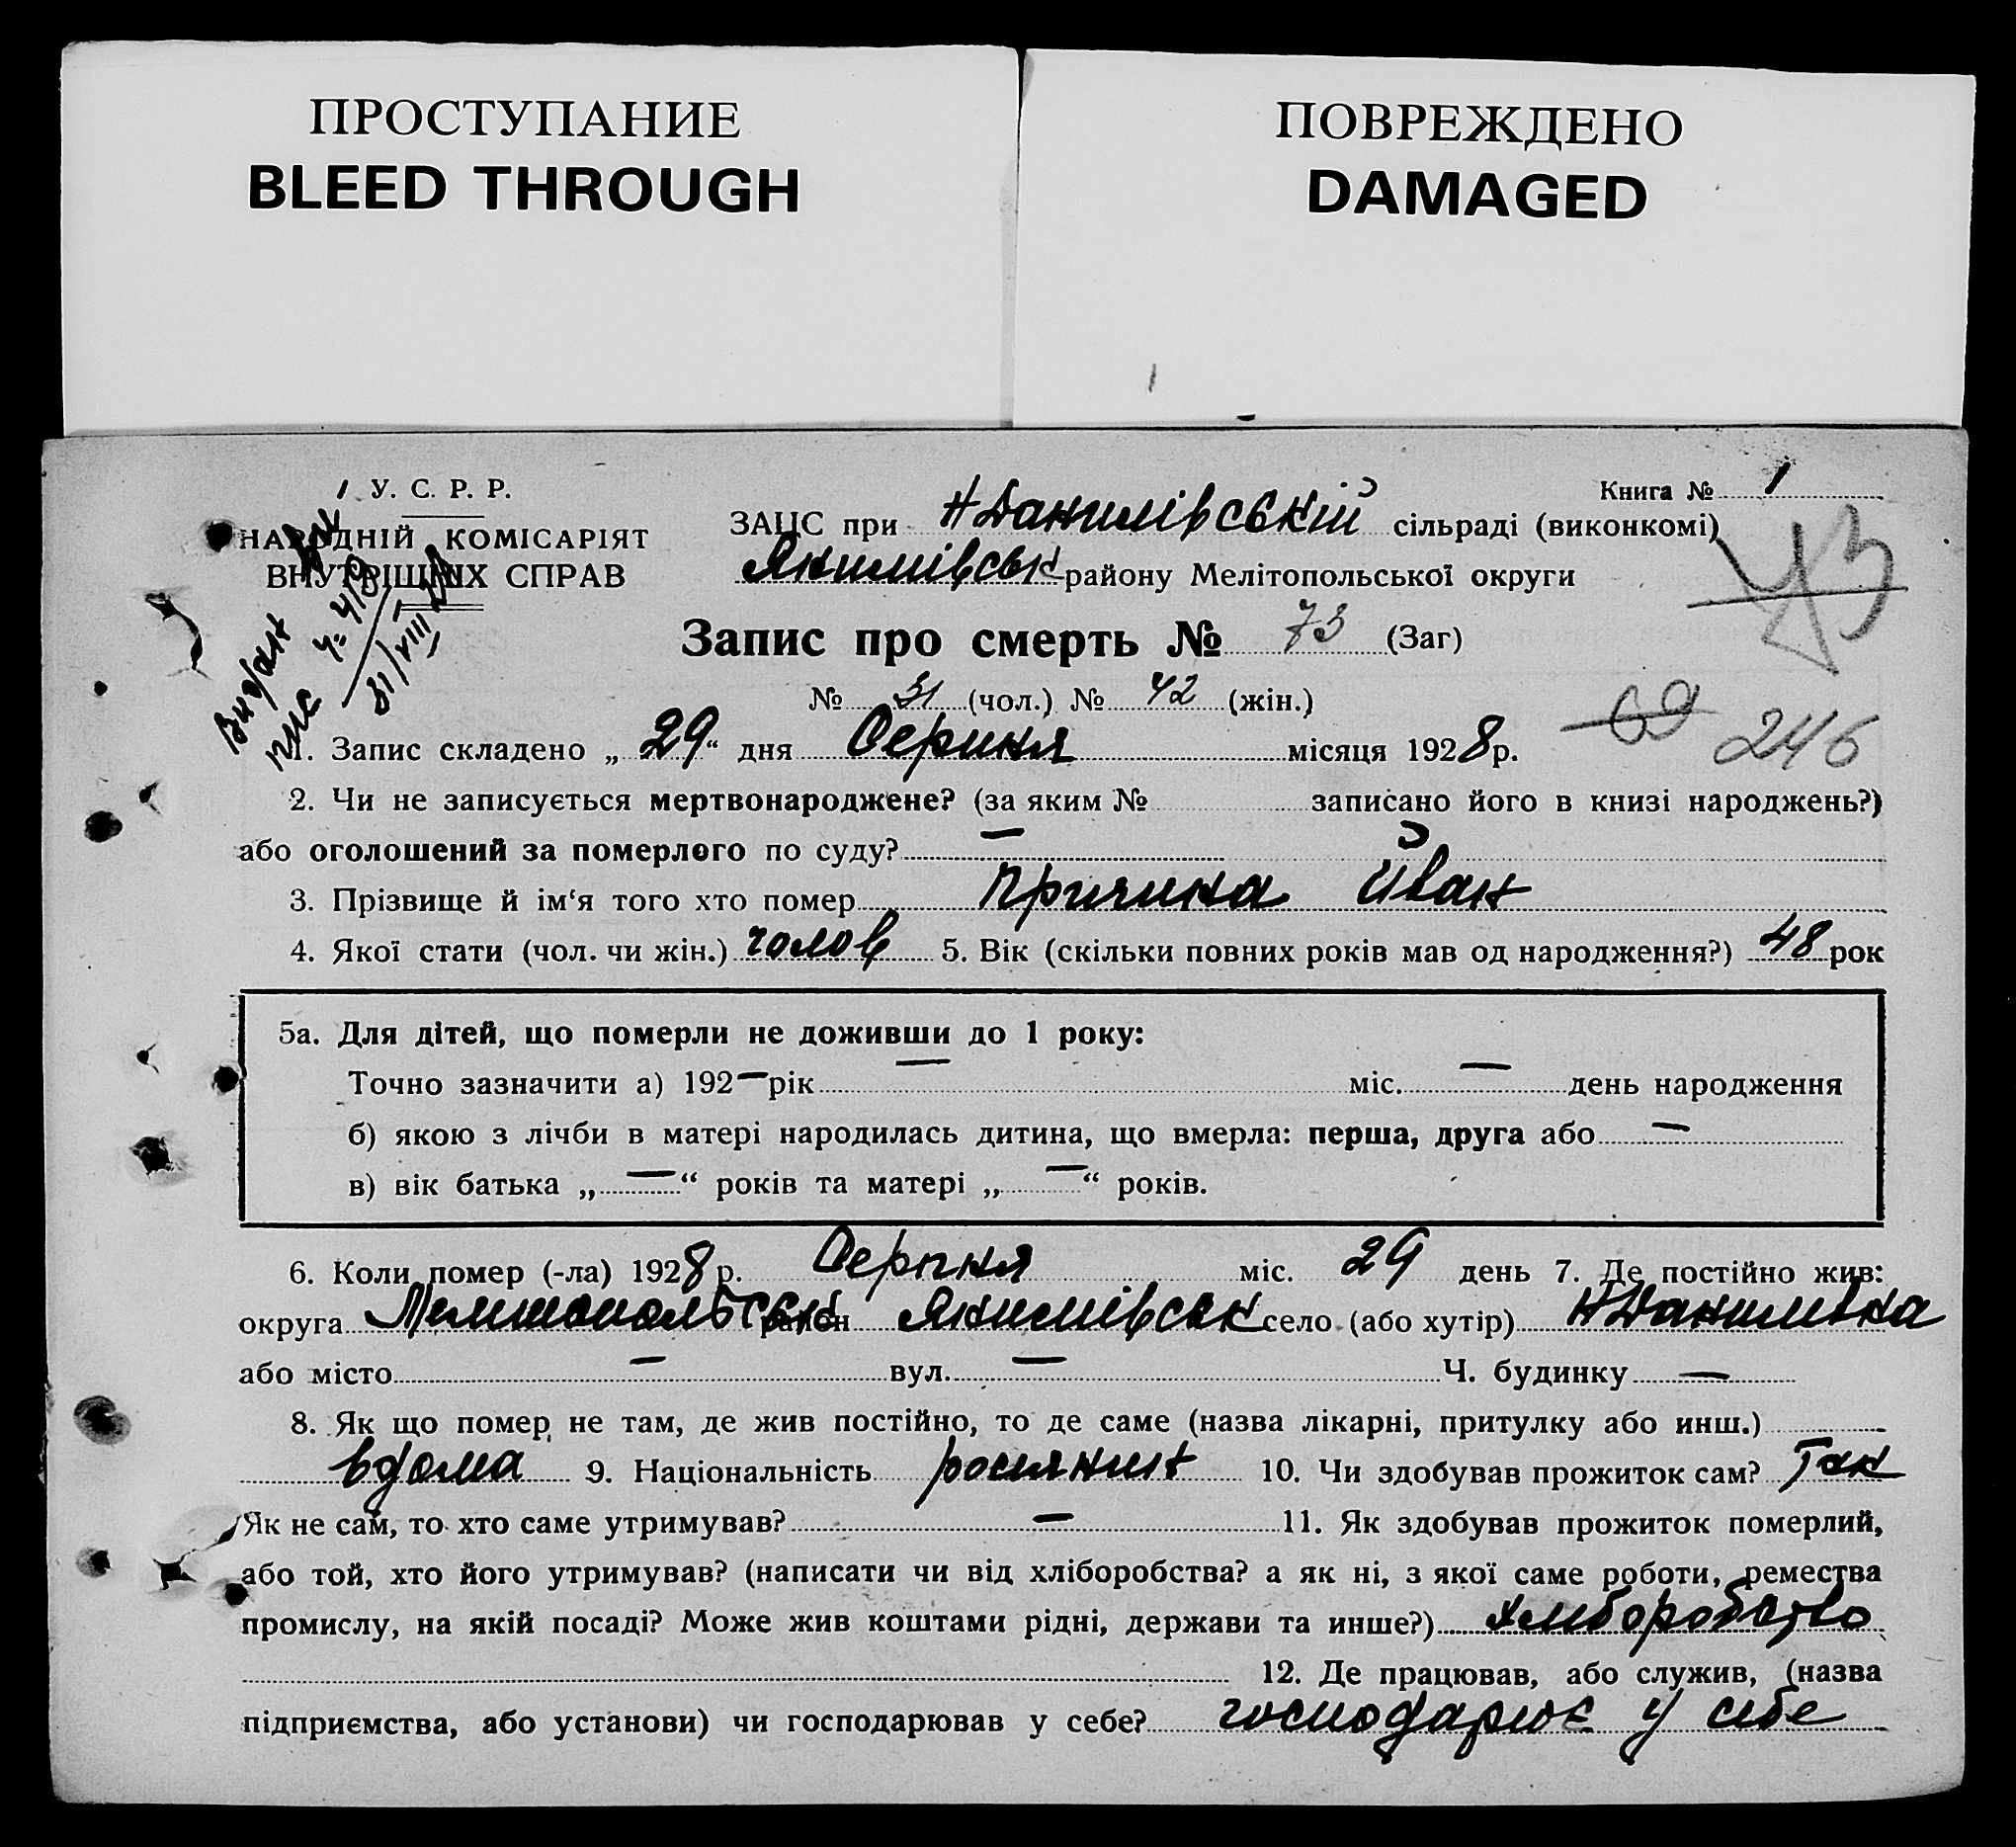 ПРОСТУПАНИЕ
BLEED THROUGH
ПОВРЕЖДЕНО
DAMAGED
У. С. Р. Р.
НАРОДНІЙ КОМІСАРІЯТ
ВНУТРІШНІХ СПРАВ
Видан
31/VIII
Книга № 1
ЗАЦС при НДанилівській сільраді (виконкомі)
Якимівськ району Мелітопольської округи
43
Запис про смерть № 73 (Заг)
№ 31 (чол.) № 42 (жін.)
69 246
1. Запис складено „29“ дня Серпня місяця 1928 р.
2. Чи не записується мертвонароджене? (за яким № записано його в книзі народжень?)
або оголошений за померлого по суду? —
3. Прізвище й ім‘я того хто помер Причина Йван
4. Якої стати (чол. чи жін.) чолов 5. Вік (скільки повних років мав од народження?) 48 рок
5а. Для дітей, що померли не доживши до 1 року:
Точно зазначити а) 192— рік — міс. — день народження
б) якою з лічби в матері народилась дитина, що вмерла: перша, друга або —
в) вік батька „—“ років та матері „—“ років.
6. Коли помер (-ла) 1928 р. Серпня міс. 29 день 7. Де постійно жив:
округа Мелитопольськ район Якимівськ село (або хутір) НДанилівка
або місто — вул. — Ч. будинку —
8. Як що помер не там, де жив постійно, то де саме (назва лікарні, притулку або инш.)
вдома 9. Національність росиянин 10. Чи здобував прожиток сам? Так
Як не сам, то хто саме утримував? — 11. Як здобував прожиток померлий,
або той, хто його утримував? (написати чи від хліборобства? а як ні, з якої саме роботи, ремества
промислу, на якій посаді? Може жив коштами рідні, держави та инше?) хлиборобство
12. Де працював, або служив, (назва
підприємства, або установи) чи господарював у себе? господарює у себе